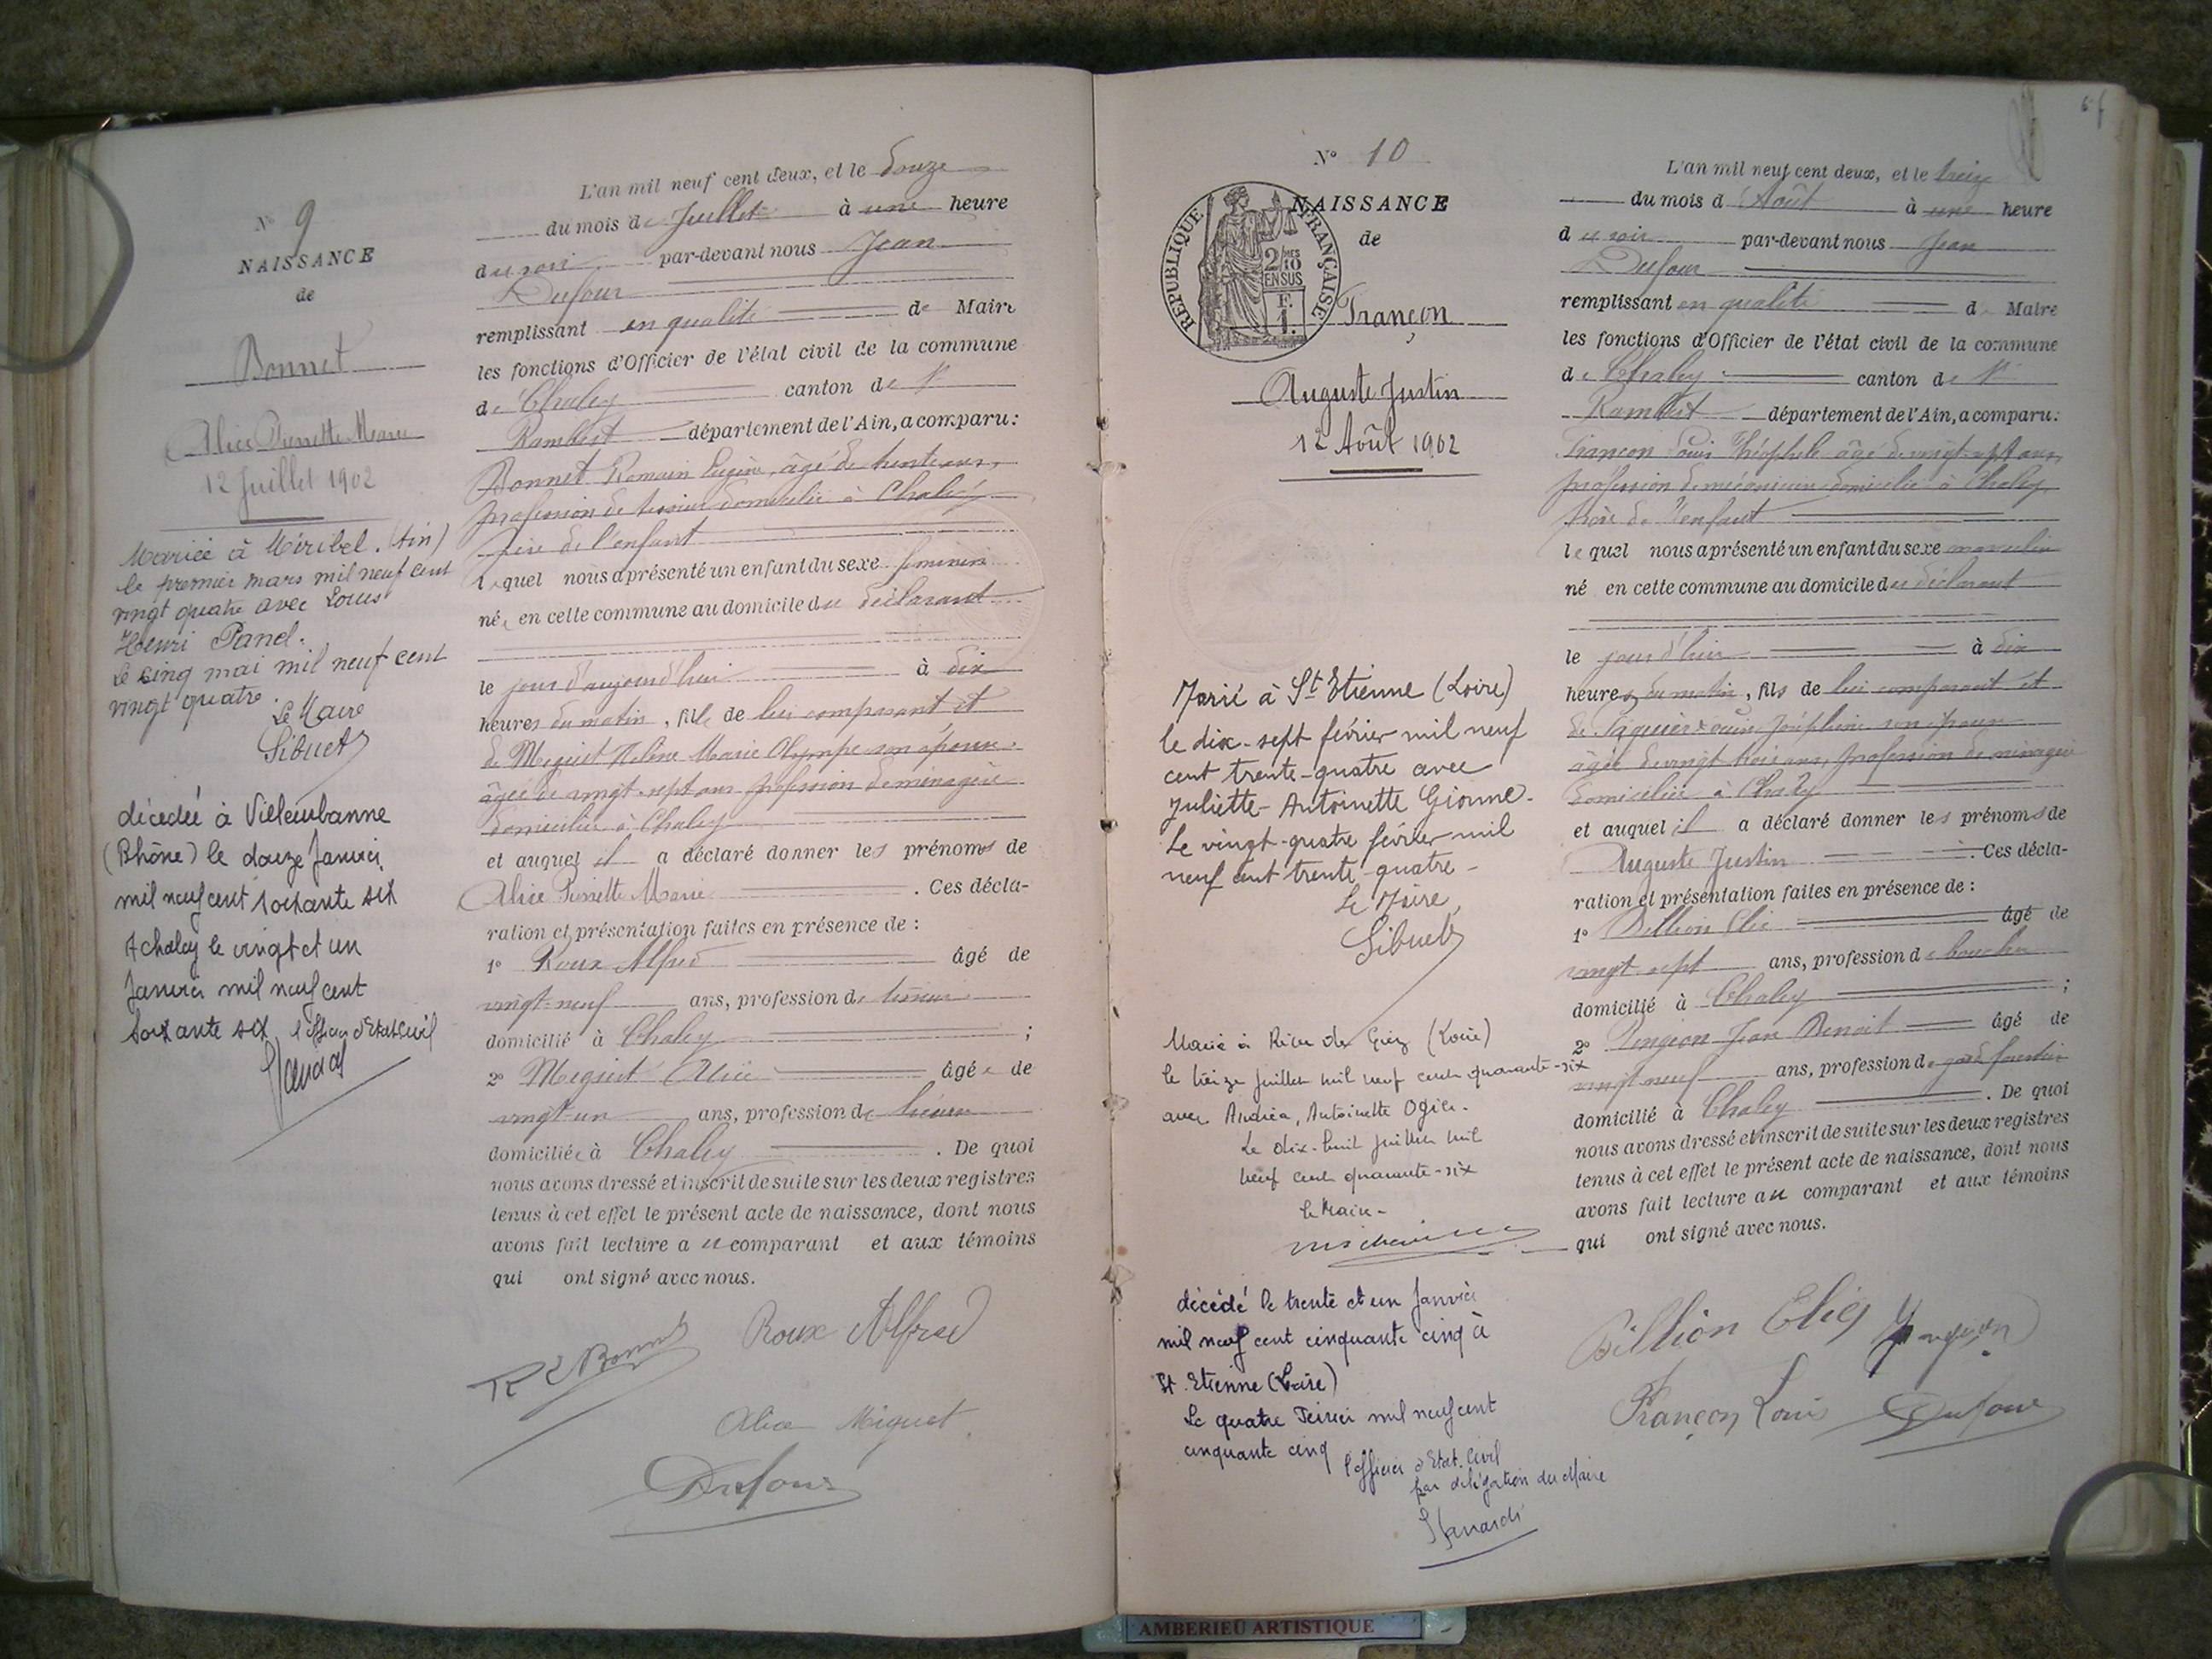 N° 9
NAISSANCE
de
Bonnet
Alice Pierrette Marie
12 Juillet 1902
Mariée à Miribel. (Ain)
le premier mars mil neuf cent
vingt quatre avec Louis
Henri Pand.
Le cinq mai mil neuf cent
vingt quatre.
Le Maire
Sibuet
décédée à Villeurbanne
(Rhône) le douze Janvier
mil neuf cent soixante six
A chaley le vingt et un
Janvier mil neuf cent
soixante six l'officier d'Etat Civil
L'an mil neuf cent deux, et le douze
du mois de Juillet à une heure
du soir par-devant nous Jean
Dufour
remplissant en qualité de Maire
les fonctions d'Officier de l'état civil de la commune
de Chaley canton de St
Rambert département de l'Ain, a comparu:
Bonnet Romain Eugène, âgé de trente ans,
profession de tisseur domicilié à Chaley
père de l'enfant
lequel nous a présenté un enfant du sexe féminin
née en cette commune au domicile du déclarant
le jour d'aujourd'hui à dix
heures du matin, fille de lui comparant et
de Miguet Hélène Marie Olympe son épouse,
âgée de vingt-sept ans profession de ménagère
domiciliée à Chaley
et auquel il a déclaré donner les prénoms de
Alice Pierrette Marie . Ces décla-
ration et présentation faites en présence de :
1° Roux Alfred âgé de
vingt-neuf ans, profession de tisseur
domicilié à Chaley ;
2° Miguet Alice âgée de
vingt-un ans, profession de tisseuse
domiciliée à Chaley . De quoi
nous avons dressé et inscrit de suite sur les deux registres
tenus à cet effet le présent acte de naissance, dont nous
avons fait lecture au comparant et aux témoins
qui ont signé avec nous.
R E Bonnet
Roux Alfred
Alice Miguet
Dufour
N° 10
NAISSANCE
de
RÉPUBLIQUE FRANÇAISE
2/10 EN SUS
F. 1.
Françon
Auguste Justin
12 Août 1902
Marié à St Etienne (Loire)
le dix-sept février mil neuf
cent trente-quatre avec
Juliette-Antoinette Gionne.
Le vingt-quatre février mil
neuf cent trente-quatre-
Le Maire,
Sibuet
Marié à Rive de Gier (Loire)
le treize juillet mil neuf cent quarante-six
avec Andréa, Antoinette Ogier.
Le dix-huit juillet mil
neuf cent quarante-six
Le Maire-
décédé le trente et un Janvier
mil neuf cent cinquante cinq à
St. Etienne (Loire)
Le quatre Février mil neuf cent
cinquante cinq
l'officier d'Etat. Civil
par délégation du Maire
L'an mil neuf cent deux, et le treize
du mois d'Août à une heure
du soir par-devant nous Jean
Dufour
remplissant en qualité de Maire
les fonctions d'Officier de l'état civil de la commune
de Chaley canton de St
Rambert département de l'Ain, a comparu:
Françon Louis Théophile âgé de vingt-sept ans,
profession de mécanicien domicilié à Chaley
père de l'enfant
lequel nous a présenté un enfant du sexe masculin
né en cette commune au domicile du déclarant
le jour d'hier à dix
heures du matin, fils de lui comparant et
de Joséphine son épouse
âgée de vingt trois ans, profession de ménagère
domiciliée à Chaley
et auquel il a déclaré donner les prénoms de
Auguste Justin . Ces décla-
ration et présentation faites en présence de :
1° Billion Elie âgé de
vingt-sept ans, profession de boucher
domicilié à Chaley ;
2° Pingeon Jean Benoit âgé de
vingt-neuf ans, profession de garde forestier
domicilié à Chaley . De quoi
nous avons dressé et inscrit de suite sur les deux registres
tenus à cet effet le présent acte de naissance, dont nous
avons fait lecture au comparant et aux témoins
qui ont signé avec nous.
Billion Elie Pingeon
Françon Louis Dufour
AMBERIEU ARTISTIQUE